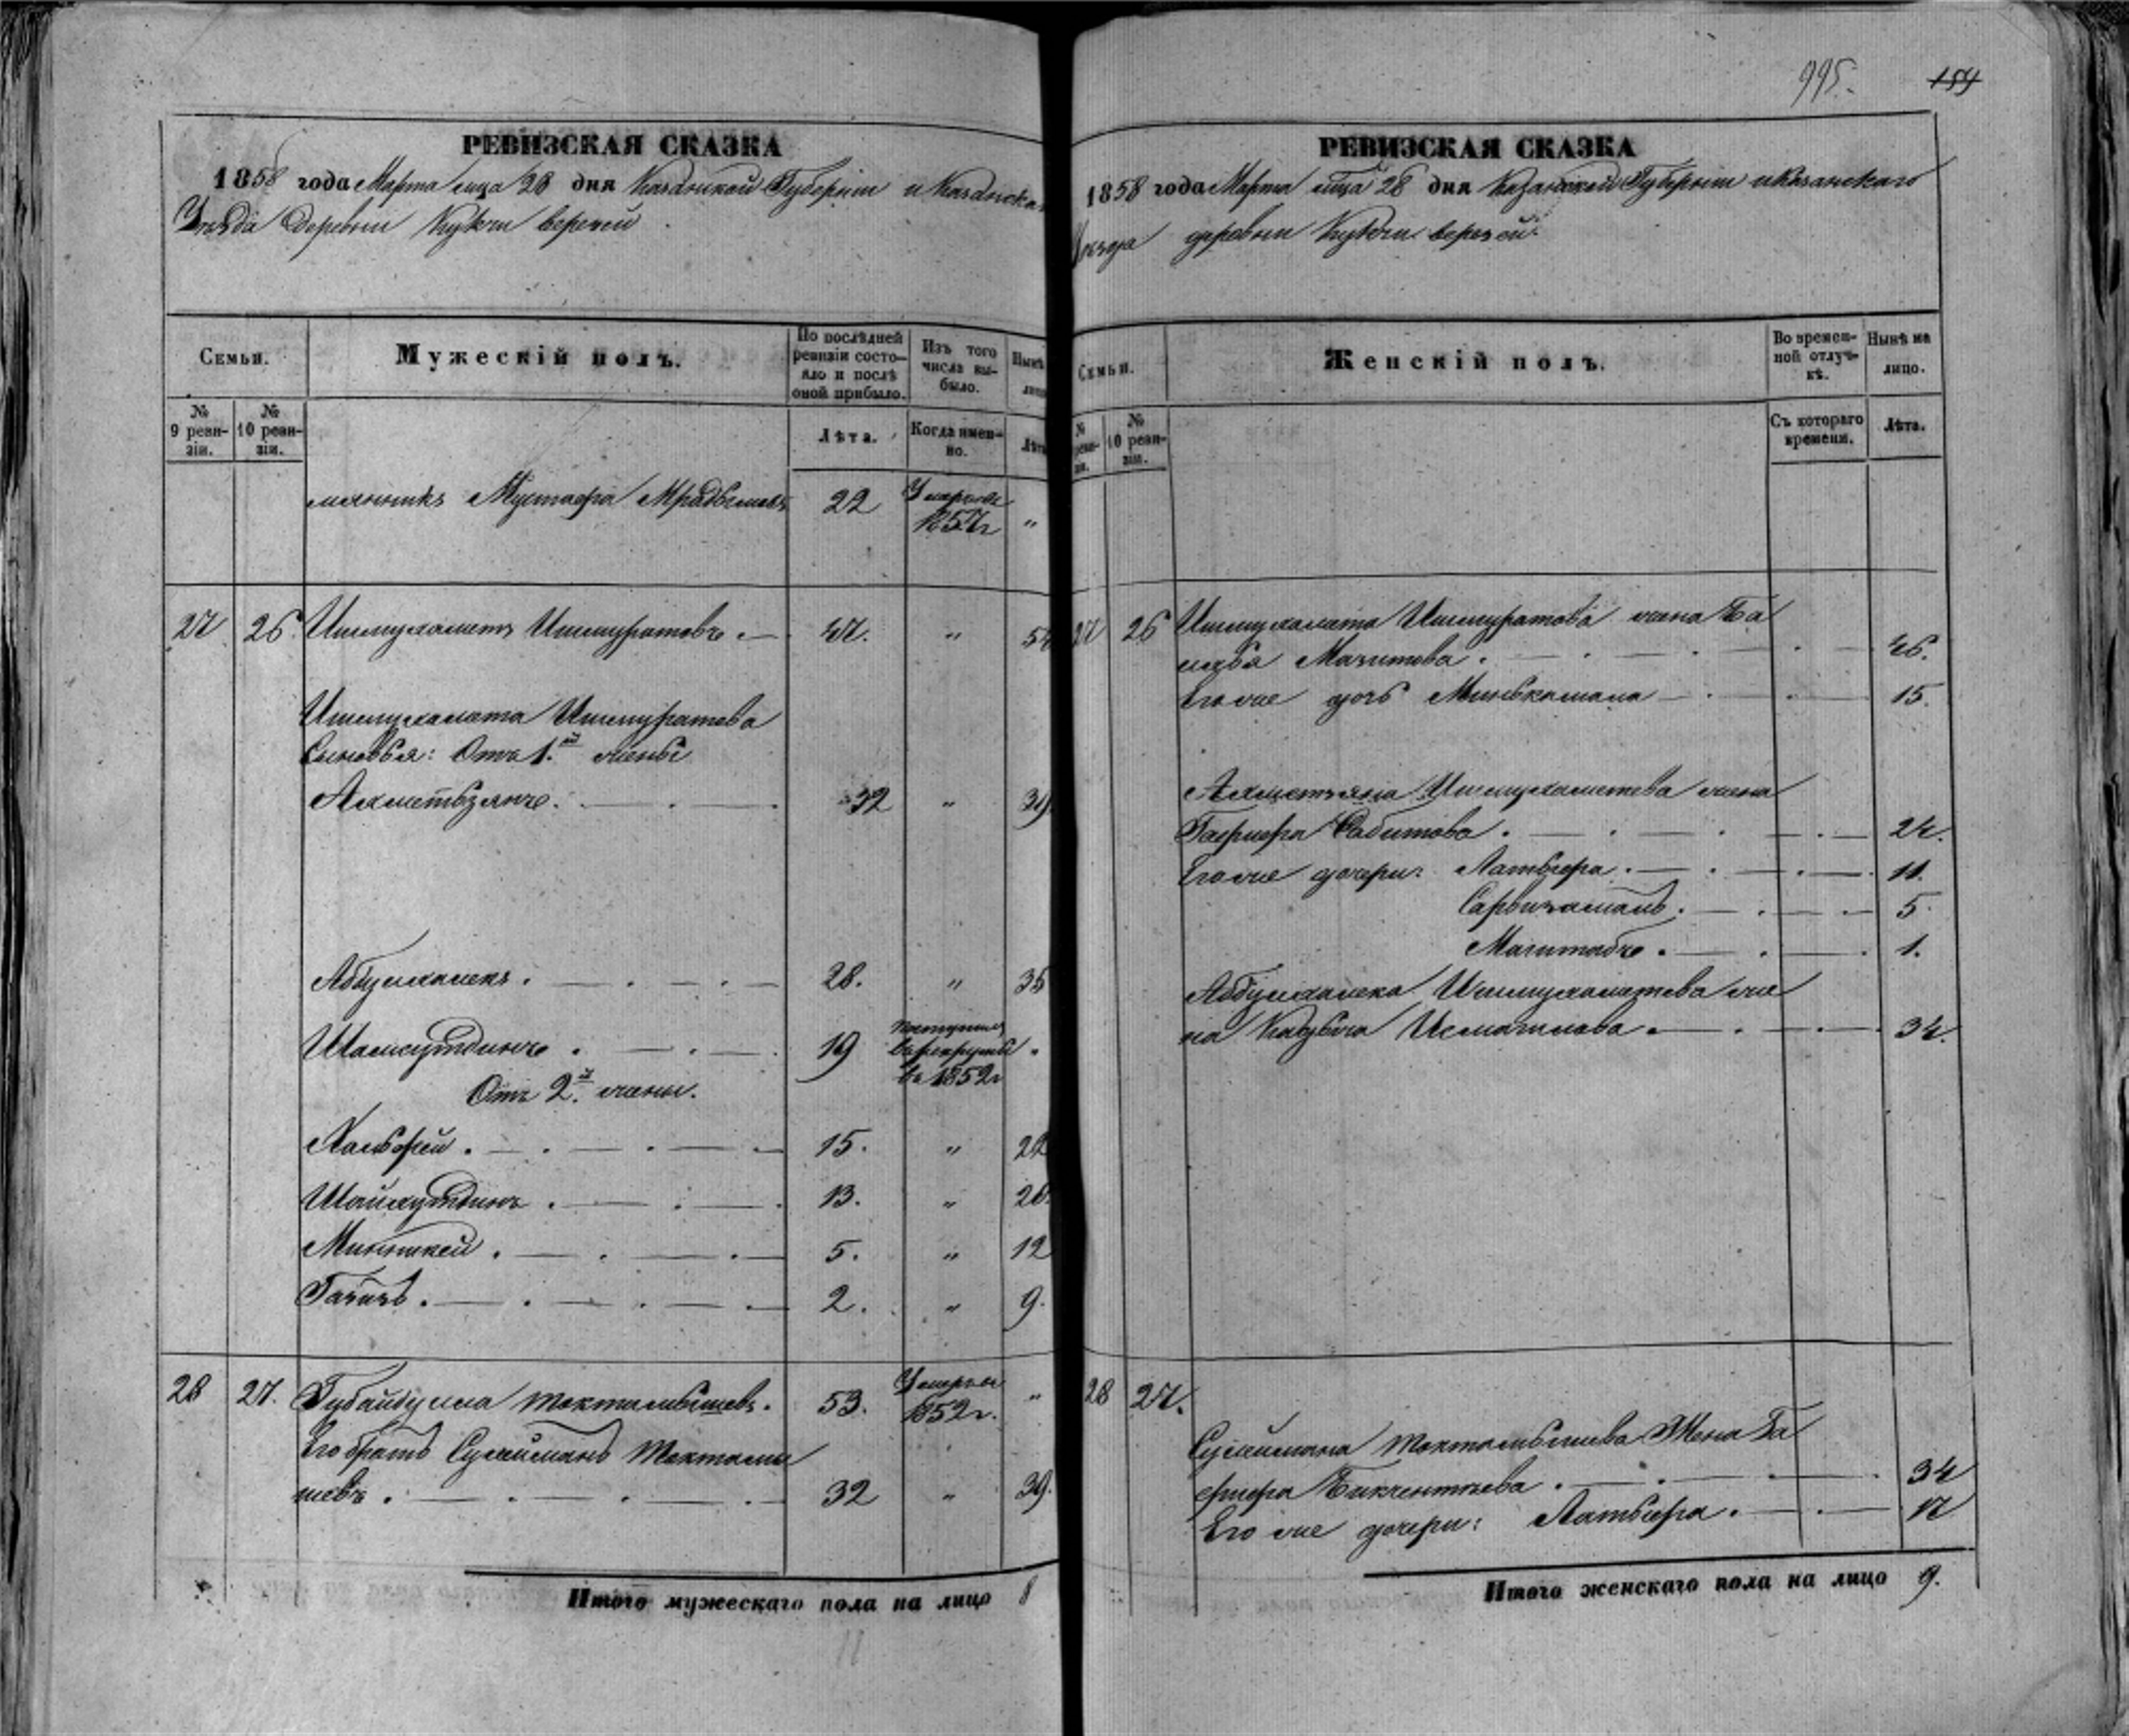 995.
154
РЕВИЗСКАЯ СКАЗКА
1858 года Марта мца 28 дня Казанской Губерніи и Казанска
Уѣзда Деревни Кукчи верхей
Семьи.
Мужескій полъ.
По послѣдней ревизіи состо-
яло и послѣ
оной прибыло.
Изъ того
числа вы-
было.
Нынѣ
лицо
№
9 реви-
зіи.
№
10 реви-
зіи.
Лѣта.
Когда имен-
но.
Лѣта
Мустафа 22 Умеръ въ 1857г "
27 26. Ишмухаметъ Ишмуратовъ. 47. " 54
Ишмухамета Ишмуратова
Сыновья: Отъ 1.й жены
Ахметьзянъ. 32 " 39
Абдулхалекъ. 28. " 35
Шамсутдинъ. 19 поступилъ
въ рекруты
въ 1852г "
Отъ 2.й жены.
15. " 22
Шайхутдинъ. 13. " 20
5. " 12
Газизъ. 2. " 9.
28 27. Губайдулла Токтамышевъ. 53. Умеръ въ 1852г. "
Его братъ Сулейманъ Токтамы
шевъ. 32 " 39.
Итого мужескаго пола на лицо 8
11
РЕВИЗСКАЯ СКАЗКА
1858 года Марта мца 28 дня Казанской Губерніи и Казанскаго
Уѣзда деревни Кукчи верхей
Семьи.
Женскій полъ.
Во времен-
ной отлуч-
кѣ.
Нынѣ на
лицо.
№
реви-
зіи.
№
10 реви-
зіи.
Съ котораго
времени.
Лѣта.
27 26 Ишмухамета Ишмуратова жена
46.
Его же дочь Минькамала 15.
Ахметзяна Ишмухаметева жена
Сабитова. 24.
Его же дочери: Латыфа. 11.
5.
1.
Абдулхалека Ишмухаметева же
на 34.
28 27.
Сулеймана Токтамышева Жена Га
34
Его же дочери: Латыфа. 17
Итого женскаго пола на лицо 9.